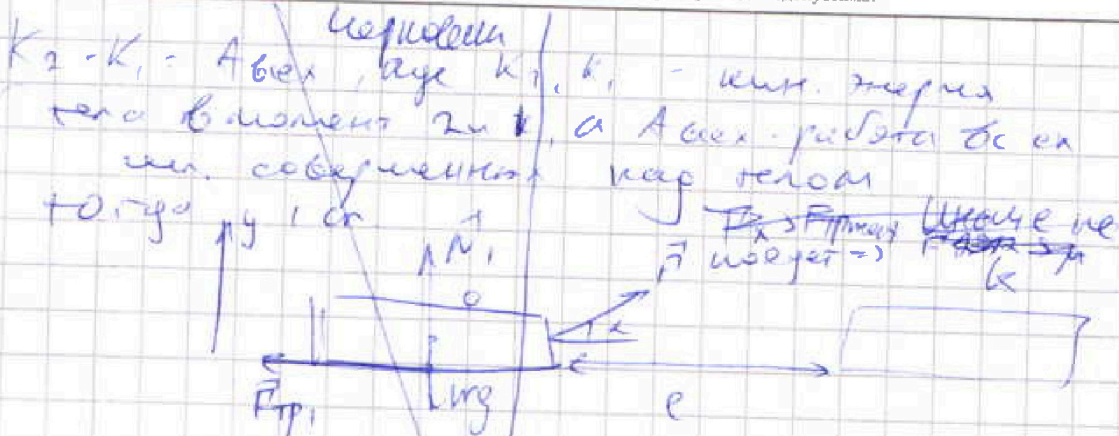 Черновик
K₂ - K₁ = A всех, где K₂, K₁ - кин. энергия
тела в момент 2 и 1, а A всех - работа всех
сил, совершенная над телом
тогда y 1 сл
Fx > Fтр Иначе не
поедет =>
N₁
F
α
mg
Fтр₁
l